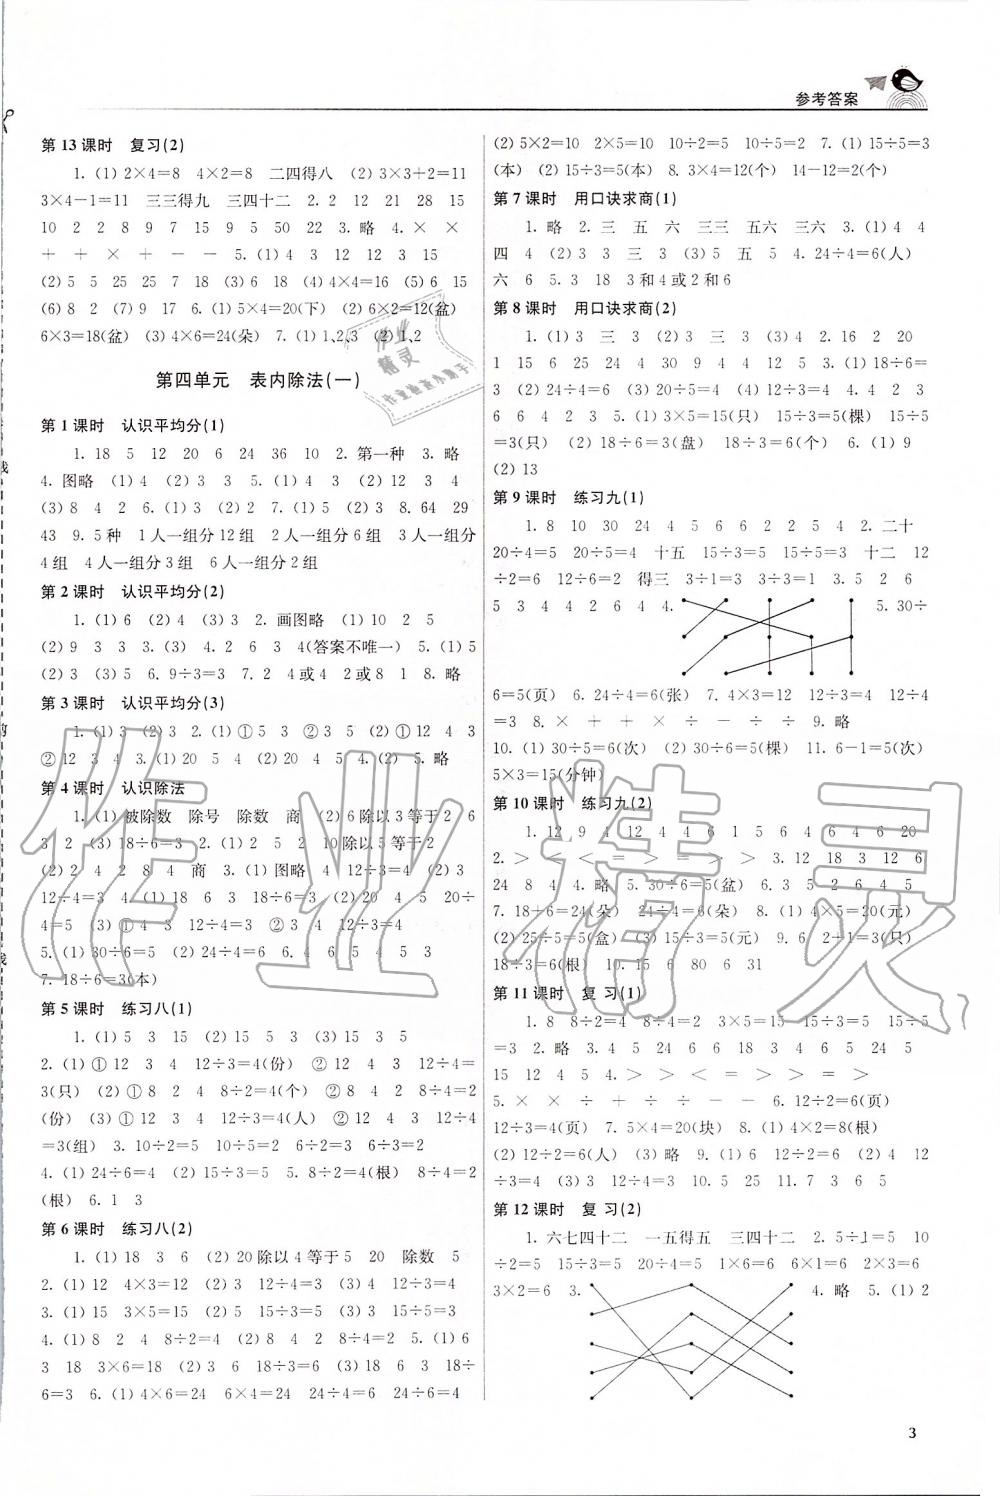 参考答案
第 13 课时　复习(2)
1. (1) 2×4=8　4×2=8　二四得八　(2) 3×3+2=11
3×4-1=11　三三得九　三四十二　2. 2　12　21　28　15
10　2　2　8　9　7　15　9　5　50　22　3. 略　4. ×　×
+　+　×　+　-　-　5. (1) 4　3　12　12　3　15
(2) 5　5　25　25　7　(3) 6　18　(4) 16　(5) 6　15
(6) 8　2　(7) 9　17　6. (1) 5×4=20(下)　(2) 6×2=12(盆)
6×3=18(盆)　(3) 4×6=24(朵)　7. (1) 1、2、3　(2) 1、2
第四单元　表内除法(一)
第 1 课时　认识平均分(1)
1. 18　5　12　20　6　24　36　10　2. 第一种　3. 略
4. 图略　(1) 4　(2) 3　3　5. (1) 4　(2) 12　3　4
(3) 8　4　2　6. (1) 3　(2) 2　7. (1) 5　(2) 3　8. 64　29
43　9. 5 种　1 人一组分 12 组　2 人一组分 6 组　3 人一组分
4 组　4 人一组分 3 组　6 人一组分 2 组
第 2 课时　认识平均分(2)
1. (1) 6　(2) 4　(3) 3　2. 画图略　(1) 10　2　5
(2) 9　3　3　3. (3)　4. 2　6　3　4(答案不唯一)　5. (1) 5
(2) 3　(3) 5　6. 9÷3=3　7. 2　4 或 4　2 或 8　1　8. 略
第 3 课时　认识平均分(3)
1. (1) 3　(2) 3　2. (1) ① 5　3　② 3　5　(2) ① 12　4　3
② 12　3　4　3. (1) 20　5　4　(2) 20　4　5　4. (2)　5. 略
第 4 课时　认识除法
1. (1) 被除数　除号　除数　商　(2) 6 除以 3 等于 2　6
3　2　(3) 18÷6=3　2. (1) 2　5　2　10 除以 5 等于 2
(2) 2　4　2　8　4　商　3. (1) 图略　4　12÷3=4　(2) 3
12÷4=3　4. (1) 18　6　3　18÷6=3　(2) 20　4　5　20÷
4=5　(3) ① 3　4　12÷3=4　② 4　3　12÷4=3
5. (1) 30÷6=5　(2) 24÷6=4　6. 4　5　4　5　3
7. 18÷6=3(本)
第 5 课时　练习八(1)
1. (1) 5　3　15　(2) 15　5　3　(3) 15　3　5
2. (1) ① 12　3　4　12÷3=4(份)　② 12　4　3　12÷4=
3(只)　(2) ① 8　2　4　8÷2=4(个)　② 8　4　2　8÷4=2
(份)　(3) ① 12　3　4　12÷3=4(人)　② 12　4　3　12÷4
=3(组)　3. 10÷2=5　10÷5=2　6÷2=3　6÷3=2
4. (1) 24÷6=4　(2) 15÷3=5　5. 8÷2=4(根)　8÷4=2
(根)　6. 1　3
第 6 课时　练习八(2)
1. (1) 18　3　6　(2) 20 除以 4 等于 5　20　除数　5
2. (1) 12　4×3=12　(2) 3　12÷4=3　(3) 4　12÷3=4
3. (1) 15　3×5=15　(2) 5　15÷3=5　(3) 3　15÷5=3
4. (1) 8　2　4　8÷2=4　(2) 8　4　2　8÷4=2　5. (1) 6
3　18　3×6=18　(2) 3　6　18÷3=6　(3) 6　3　18÷
6=3　6. (1) 4×6=24　6×4=24　24÷4=6　24÷6=4
(2) 5×2=10　2×5=10　10÷2=5　10÷5=2　7. (1) 15÷5=3
(本)　(2) 15÷3=5(本)　8. 3×4=12(个)　14-12=2(个)
第 7 课时　用口诀求商(1)
1. 略　2. 三　五　六　三三　五六　三六　3. (1) 4　4
四　4　(2) 3　3　三　3　(3) 5　五　5　4. 24÷4=6(人)
六　6　5. 3　18　3 和 4 或 2 和 6
第 8 课时　用口诀求商(2)
1. (1) 3　三　3　(2) 3　三　3　(3) 4　四　4　2. 16　2　20
1　15　6　25　8　24　5　30　4　3　3. (1) 3　(3) 18÷6=
3　(2) 4　24÷6=4　(3) 3　12÷4=3　(4) 2　4. 4　2　3
6　6　4　2　3　5. (1) 3×5=15(只)　15÷3=5(棵)　15÷5
=3(只)　(2) 18÷6=3(盘)　18÷3=6(个)　6. (1) 9
(2) 13
第 9 课时　练习九(1)
1. 8　10　30　24　4　5　6　6　2　2　5　4　2. 二十
20÷4=5　20÷5=4　十五　15÷3=5　15÷5=3　十二　12
÷2=6　12÷6=2　得三　3÷1=3　3÷3=1　3. 5　2　6
5　3　4　4　2　6　4　4.　5. 30÷
6=5(页)　6. 24÷6=4(张)　7. 4×3=12　12÷3=4　12÷4
=3　8. ×　+　+　×　÷　-　÷　÷　9. 略
10. (1) 30÷6=5(次)　(2) 30÷6=5(棵)　11. 6-1=5(次)
5×3=15(分钟)
第 10 课时　练习九(2)
1. 12　9　4　12　4　4　6　1　5　6　4　6　4　6　20
2. >　<　<　=　>　=　>　>　3. 12　18　3　12　6
24　8　4　4. 略　5. 30÷6=5(盆)　6. 3　5　2　6　4　5
7. 18+6=24(朵)　24÷6=4(朵)　8. (1) 4×5=20(元)
(2) 25÷5=5(盒)　(3) 15÷5=3(元)　9. 6　2+1=3(只)
18÷3=6(根)　10. 15　6　80　6　31
第 11 课时　复 习(1)
1. 8　8÷2=4　8÷4=2　3×5=15　15÷3=5　15÷5
=3　2. 略　3. 4　5　24　6　6　18　3　4　6　5　24　5
15　12　4　5　4. >　>　<　=　>　>　=　>
5. ×　×　÷　+　÷　÷　×　-　6. 12÷2=6(页)
12÷3=4(页)　7. 5×4=20(块)　8. (1) 4×2=8(根)
(2) 12÷2=6(人)　(3) 略　9. (1) 12÷6=2　(2) 4　12
÷4=3　(3) 3　12÷3=4　10. 5　25　11. 7　3　6　5
第 12 课时　复 习(2)
1. 六七四十二　一五得五　三四十二　2. 5÷1=5　10
÷2=5　15÷3=5　20÷4=5　1×6=6　6×1=6　2×3=6
3×2=6　3.　4. 略　5. (1) 2
3
作业精灵